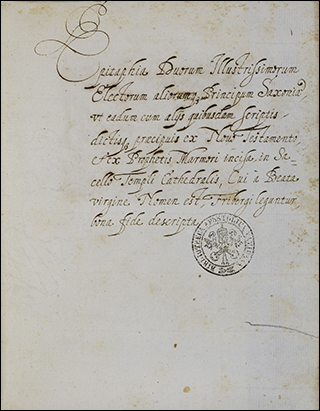 Epitaphia Duorum Illustrissimorum
Electorum aliorumq; Principum Saxoniæ,
vt eadum cum alijs quibusdam scriptis
dictisq; præcipuis ex Nouo Testamento,
et ex Prophetis Marmori incisa, in Sa-
cello Templi Cathedrales, Cui a Beata
virgine Nomen est Fribergi leguntur,
bona fide descripta.
BIBLIOTHECA APOSTOLICA VATICANA